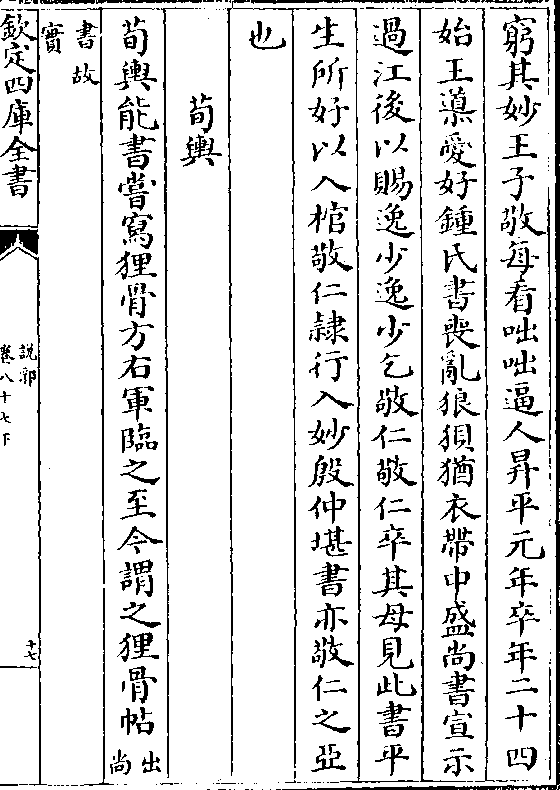 窮其妙王子敬每看咄咄逼人昇平元年卒年二十四
始王導愛好鍾氏書喪亂狼狽猶衣帶中盛尚書宣示
過江後以賜逸少逸少乞敬仁敬仁卒其母見此書平
生所好以入棺敬仁隸行入妙殷仲堪書亦敬仁之亞
也
荀輿
荀輿能書嘗寫狸骨方右軍臨之至今謂之狸骨帖出尚
書故實
欽定四庫全書
說郛
卷八十七下
十七